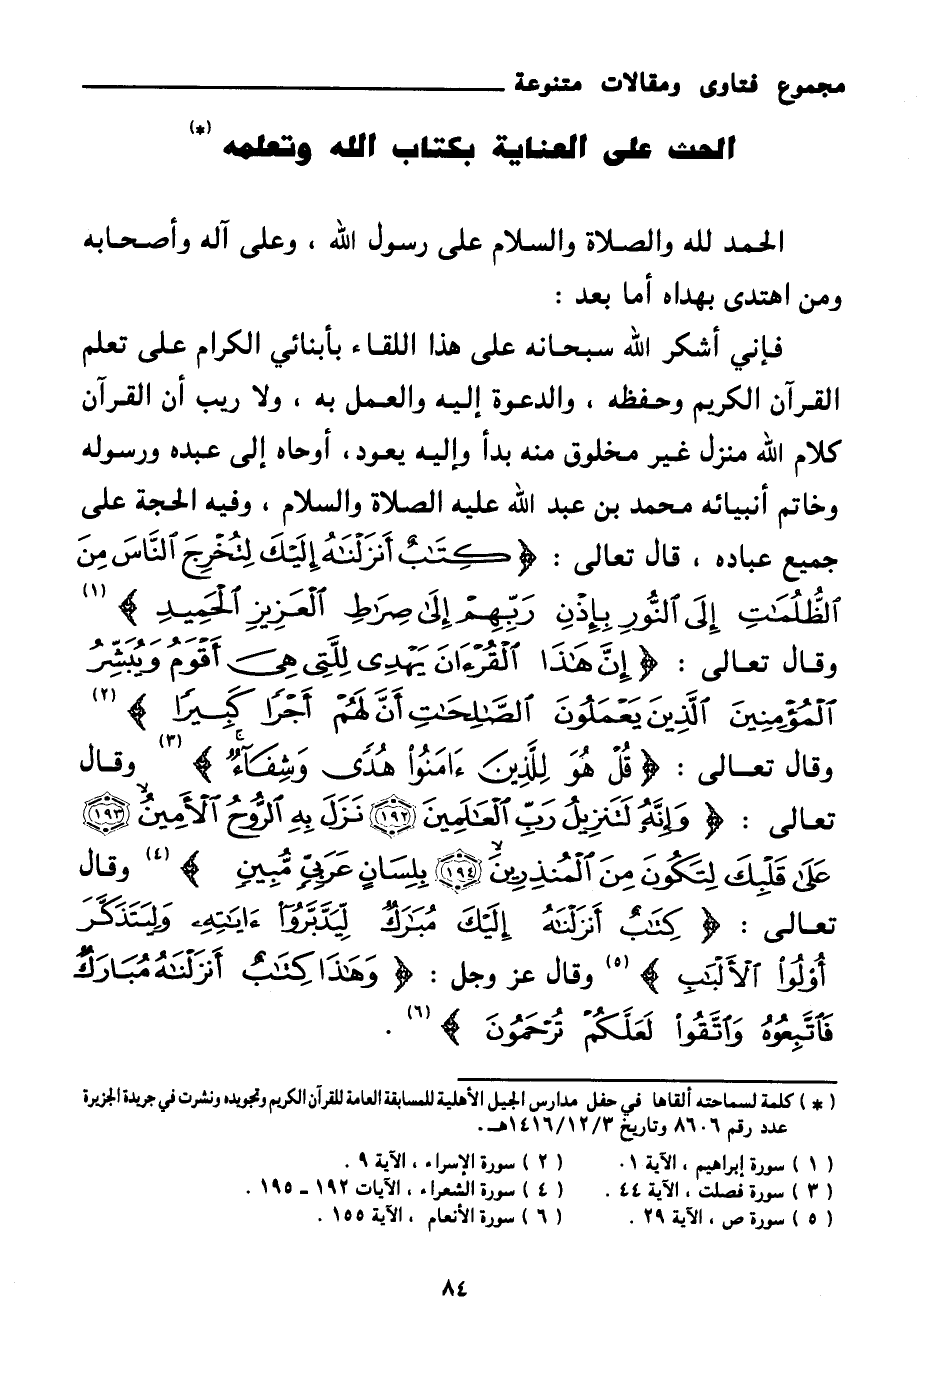 مجموع فتاوى ومقالات متنوعة
الحث على العناية بكتاب الله وتعلمه (*)
الحمد لله والصلاة والسلام على رسول الله ، وعلى آله وأصحابه
ومن اهتدى بهداه أما بعد :
فإني أشكر الله سبحانه على هذا اللقاء بأبنائي الكرام على تعلم
القرآن الكريم وحفظه ، والدعوة إليه والعمل به ، ولا ريب أن القرآن
كلام الله منزل غير مخلوق منه بدأ وإليه يعود، أوحاه إلى عبده ورسوله
وخاتم أنبيائه محمد بن عبد الله عليه الصلاة والسلام ، وفيه الحجة على
جميع عباده ، قال تعالى : ﴿ كِتَٰبٌ أَنزَلْنَٰهُ إِلَيْكَ لِتُخْرِجَ ٱلنَّاسَ مِنَ
ٱلظُّلُمَٰتِ إِلَى ٱلنُّورِ بِإِذْنِ رَبِّهِمْ إِلَىٰ صِرَٰطِ ٱلْعَزِيزِ ٱلْحَمِيدِ ﴾ (١)
وقال تعالى : ﴿ إِنَّ هَٰذَا ٱلْقُرْءَانَ يَهْدِى لِلَّتِى هِىَ أَقْوَمُ وَيُبَشِّرُ
ٱلْمُؤْمِنِينَ ٱلَّذِينَ يَعْمَلُونَ ٱلصَّٰلِحَٰتِ أَنَّ لَهُمْ أَجْرًا كَبِيرًا ﴾ (٢)
وقال تعالى : ﴿ قُلْ هُوَ لِلَّذِينَ ءَامَنُوا۟ هُدًى وَشِفَآءٌ ۚ ﴾ (٣) وقال
تعالى : ﴿ وَإِنَّهُۥ لَتَنزِيلُ رَبِّ ٱلْعَٰلَمِينَ ١٩٢ نَزَلَ بِهِ ٱلرُّوحُ ٱلْأَمِينُ ١٩٣
عَلَىٰ قَلْبِكَ لِتَكُونَ مِنَ ٱلْمُنذِرِينَ ١٩٤ بِلِسَانٍ عَرَبِىٍّ مُّبِينٍ ﴾ (٤) وقال
تعالى : ﴿ كِتَٰبٌ أَنزَلْنَٰهُ إِلَيْكَ مُبَٰرَكٌ لِّيَدَّبَّرُوٓا۟ ءَايَٰتِهِۦ وَلِيَتَذَكَّرَ
أُو۟لُوا۟ ٱلْأَلْبَٰبِ ﴾ (٥) وقال عز وجل : ﴿ وَهَٰذَا كِتَٰبٌ أَنزَلْنَٰهُ مُبَارَكٌ
فَٱتَّبِعُوهُ وَٱتَّقُوا۟ لَعَلَّكُمْ تُرْحَمُونَ ﴾ (٦) .
( * ) كلمة لسماحته ألقاها في حفل مدارس الجيل الأهلية للمسابقة العامة للقرآن الكريم وتجويده ونشرت في جريدة الجزيرة
عدد رقم ٨٦٠٦ وتاريخ ١٤١٦/١٢/٣هـ .
( ١ ) سورة إبراهيم ، الآية ١. ( ٢ ) سورة الإسراء ، الآية ٩ .
( ٣ ) سورة فصلت ، الآية ٤٤ . ( ٤ ) سورة الشعراء ، الآيات ١٩٢ ـ ١٩٥ .
( ٥ ) سورة ص ، الآية ٢٩ . ( ٦ ) سورة الأنعام ، الآية ١٥٥ .
٨٤